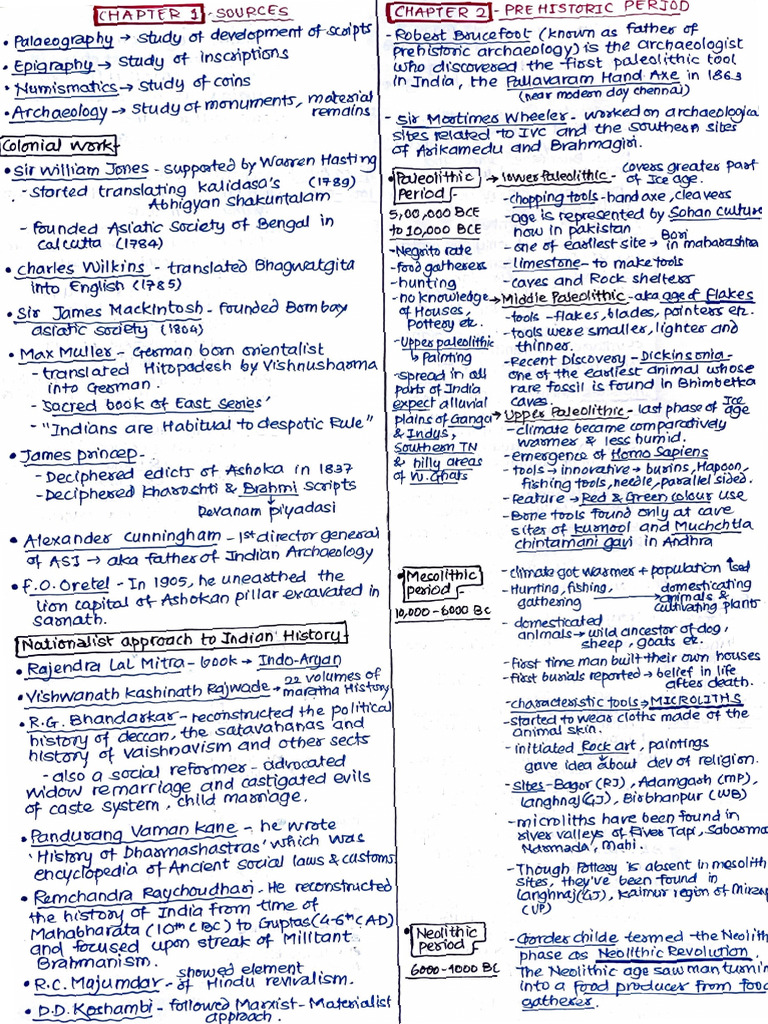 CHAPTER 1 - SOURCES
• Palaeography → study of development of scripts
• Epigraphy → study of inscriptions
• Numismatics → study of coins
• Archaeology → study of monuments, material
remains
Colonial work
• Sir William Jones - supported by Warren Hasting
- started translating Kalidasa's (1789)
Abhigyan Shakuntalam
- founded Asiatic Society of Bengal in
Calcutta (1784)
• Charles Wilkins - translated Bhagwatgita
into English (1785)
• Sir James Mackintosh - founded Bombay
asiatic society (1804)
• Max Muller - German born orientalist
- translated Hitopadesh by Vishnusharma
into German.
- Sacred book of East series'
- "Indians are Habitual to despotic Rule"
• James princep -
- Deciphered edicts of Ashoka in 1837
- Deciphered Kharoshti & Brahmi Scripts
Devanam piyadasi
• Alexander Cunningham - 1st director general
of ASI → aka father of Indian Archaeology
• F.O. Oretel - In 1905, he unearthed the
lion capital of Ashokan pillar excavated in
Sarnath.
Nationalist approach to Indian History
• Rajendra Lal Mitra - book → Indo-Aryan
• Vishwanath Kashinath Rajwade → 22 volumes of
maratha History
• R.G. Bhandarkar - reconstructed the political
history of deccan, the satavahanas and
history of vaishnavism and other sects
- also a social reformer - advocated
widow remarriage and castigated evils
of caste system, child marriage.
• Pandurang Vaman Kane - he wrote
'History of Dharmashastras' which was
encyclopedia of Ancient social laws & customs
• Remchandra Raychoudhari - He reconstructed
the history of India from time of
Mahabharata (10th c BC) to Guptas (4-6th c AD)
and focused upon streak of Militant
Brahmanism.
• R.C. Majumdar - showed element
of Hindu revivalism.
• D.D. Koshambi - followed Marxist - Materialist
approach.
CHAPTER 2 - PREHISTORIC PERIOD
- Robert Brucefoot (known as father of
prehistoric archaeology) is the archaeologist
who discovered the first paleolithic tool
in India, the Pallavaram Hand Axe in 1863
(near modern day chennai)
- Sir Mortimer Wheeler - worked on archaeologica
sites related to IVC and the southern sites
of Arikamedu and Brahmagiri.
• Paleolithic
Period -
5,00,000 BCE
to 10,000 BCE
- Negrito rate
- food gatherers
- hunting
- no knowledge
of Houses,
Pottery etc.
- Upper paleolithic
↳ Painting
- spread in all
parts of India
expect alluvial
plains of Ganga
& Indus,
Southern TN
& hilly areas
of W.Ghats
→ lower Paleolithic - covers greater part
of Ice age.
- chopping tools - hand axe, cleavers
- age is represented by Sohan Culture
now in pakistan
- one of earliest site → Bori
in maharashtra
- limestone - to make tools
- caves and Rock shelters
→ Middle Paleolithic - aka age of flakes
- tools - flakes, blades, pointers etc.
- tools were smaller, lighter and
thinner.
- Recent Discovery - Dickinsonia -
one of the earliest animal whose
rare fossil is found in Bhimbetka
caves.
→ Upper Paleolithic - last phase of Ice
age
- climate became comparatively
warmer & less humid.
- emergence of Homo Sapiens
- tools → innovative → burins, Hapoon,
fishing tools, needle, parallel sided.
- feature → Red & Green colour use
- Bone tools found only at cave
sites of Kurnool and Muchchtla
chintamani gavi in Andhra
• Mesolithic
period -
10,000-6000 BC
- climate got warmer + population ↑sed
- Hunting, fishing,
gathering → domesticating
animals &
cultivating plants
- domesticated
animals → wild ancestor of dog,
sheep, goats etc.
- First time man built their own houses
- first burials reported → belief in life
after death.
- characteristic tools → MICROLITHS
- started to wear cloths made of the
animal skin.
- initiated Rock art, paintings
gave idea about dev of religion.
- Sites - Bagor (RJ), Adamgarh (MP),
langhnaj (GJ), Birbhanpur (WB)
- microliths have been found in
river valleys of River Tapi, Sabarma
Narmada, Mahi.
- Though Pottery is absent in mesolith
sites, they've been found in
langhnaj (GJ), Kaimur region of Mirzap
(UP)
• Neolithic
period -
6000-1000 BC
- Gorder childe termed the Neolith
phase as Neolithic Revolution.
The Neolithic age saw man turnin
into a food producer from food
gatherer.